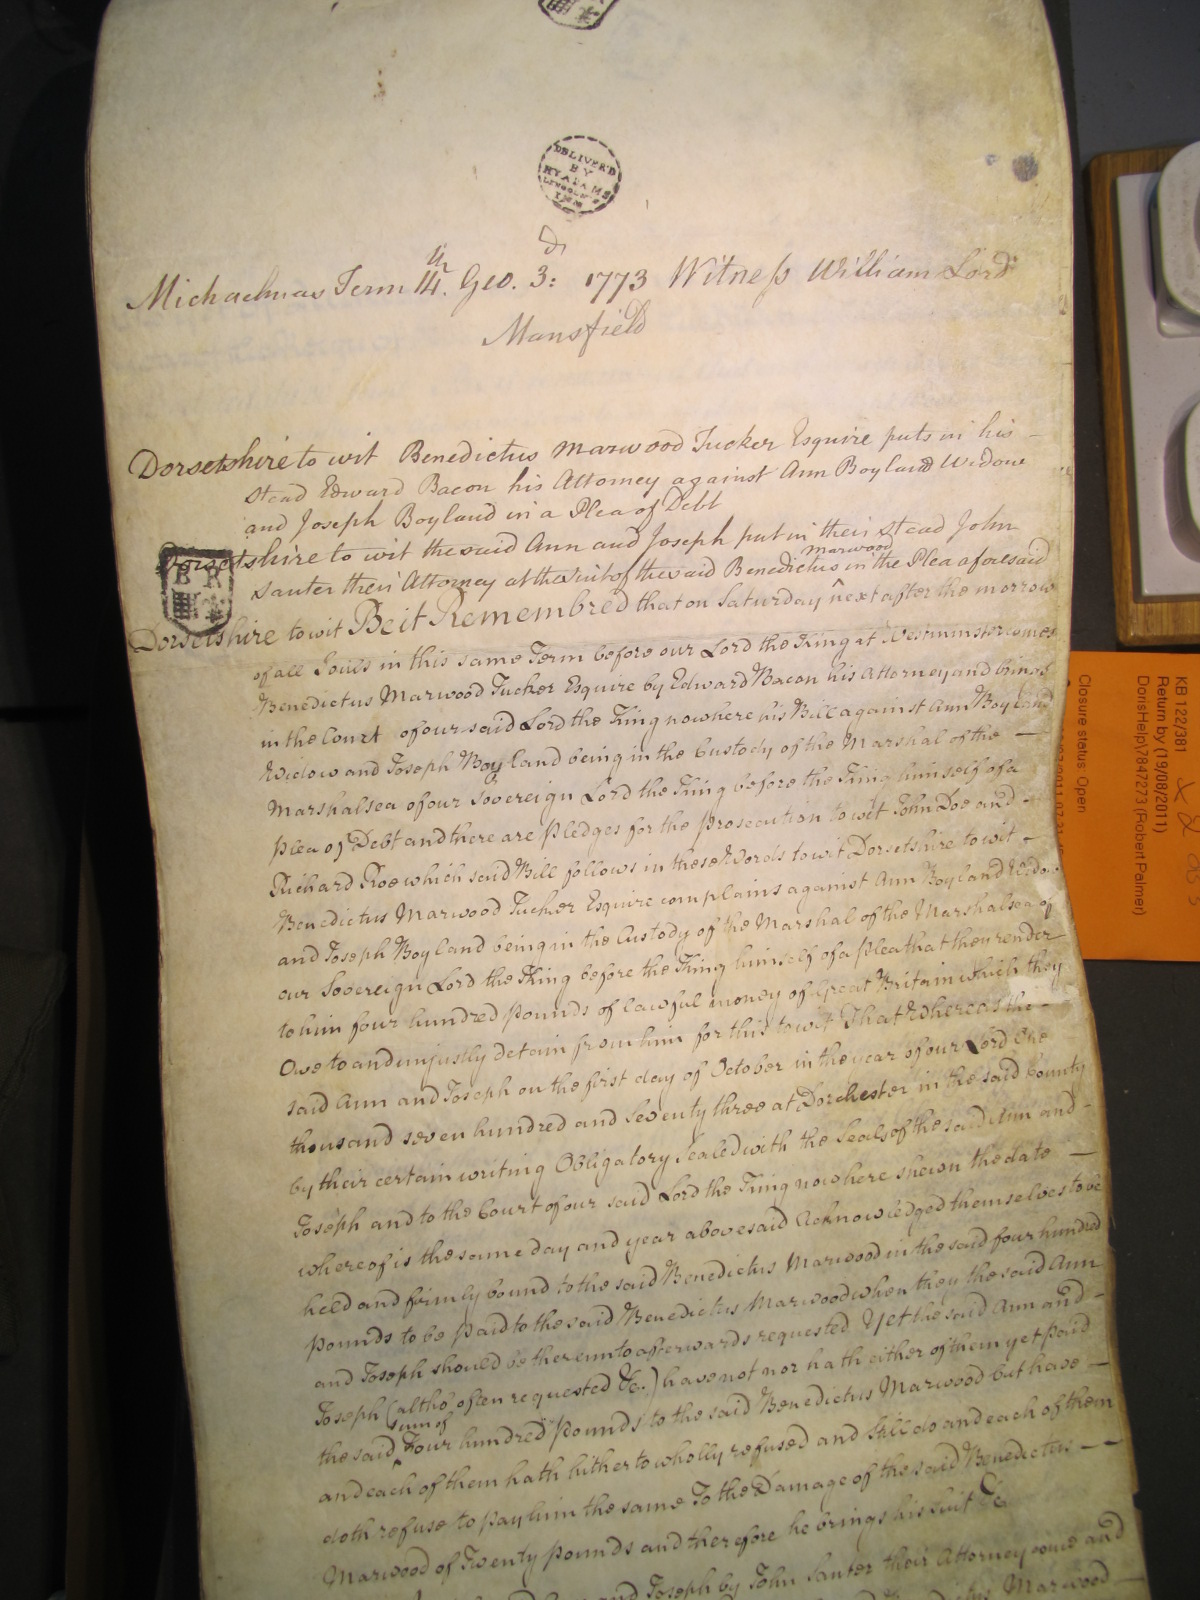 DELIVER'D
BY
HY ADAMS
LINCOLN'S
INN
Michaelmas Term 14th. Geo. 3d: 1773 Witness William Lord
Mansfield
Dorsetshire to wit Benedictus Marwood Tucker Esquire puts in his
stead Edward Bacon his Attorney against Ann Boyland Widow
and Joseph Boyland in a Plea of Debt
Dorsetshire to wit the said Ann and Joseph put in their stead John
Santer their Attorney at the suit of the said Benedictus Marwood in the Plea aforesaid
B R
Dorsetshire to wit Be it Remembred that on Saturday next after the morrow
of all Souls in this same Term before our Lord the King at Westminster comes
Benedictus Marwood Tucker Esquire by Edward Bacon his Attorney and brings
in the Court of our said Lord the King now here his Bill against Ann Boyland
Widow and Joseph Boyland being in the Custody of the Marshal of the
Marshalsea of our Sovereign Lord the King before the King himself of a
plea of Debt and there are pledges for the prosecution to wit John Doe and
Richard Roe which said Bill follows in these Words to wit Dorsetshire to wit
Benedictus Marwood Tucker Esquire complains against Ann Boyland Widow
and Joseph Boyland being in the Custody of the Marshal of the Marshalsea of
our Sovereign Lord the King before the King himself of a plea that they render
to him four hundred pounds of lawful money of Great Britain which they
Owe to and unjustly detain from him for this to wit That Whereas the
said Ann and Joseph on the first day of October in the year of our Lord One
thousand seven hundred and Seventy three at Dorchester in the said County
by their certain writing Obligatory Sealed with the Seals of the said Ann and
Joseph and to the Court of our said Lord the King now here shewn the date
whereof is the same day and year abovesaid Acknowledged themselves to be
held and firmly bound to the said Benedictus Marwood in the said four hundred
pounds to be paid to the said Benedictus Marwood when they the said Ann
and Joseph should be thereunto afterwards requested Yet the said Ann and
Joseph (altho' often requested &c.) have not nor hath either of them yet paid
the said sum of Four hundred pounds to the said Benedictus Marwood but have
and each of them hath hitherto wholly refused and Still do and each of them
doth refuse to pay him the same To the Damage of the said Benedictus
Marwood of Twenty pounds and therefore he brings his suit &c
and Joseph by John Santer their Attorney come and
Marwood
KB 122/381
Return by (19/08/2011)
DorisHelp\7847273 (Robert Palmer)
Closure status: Open